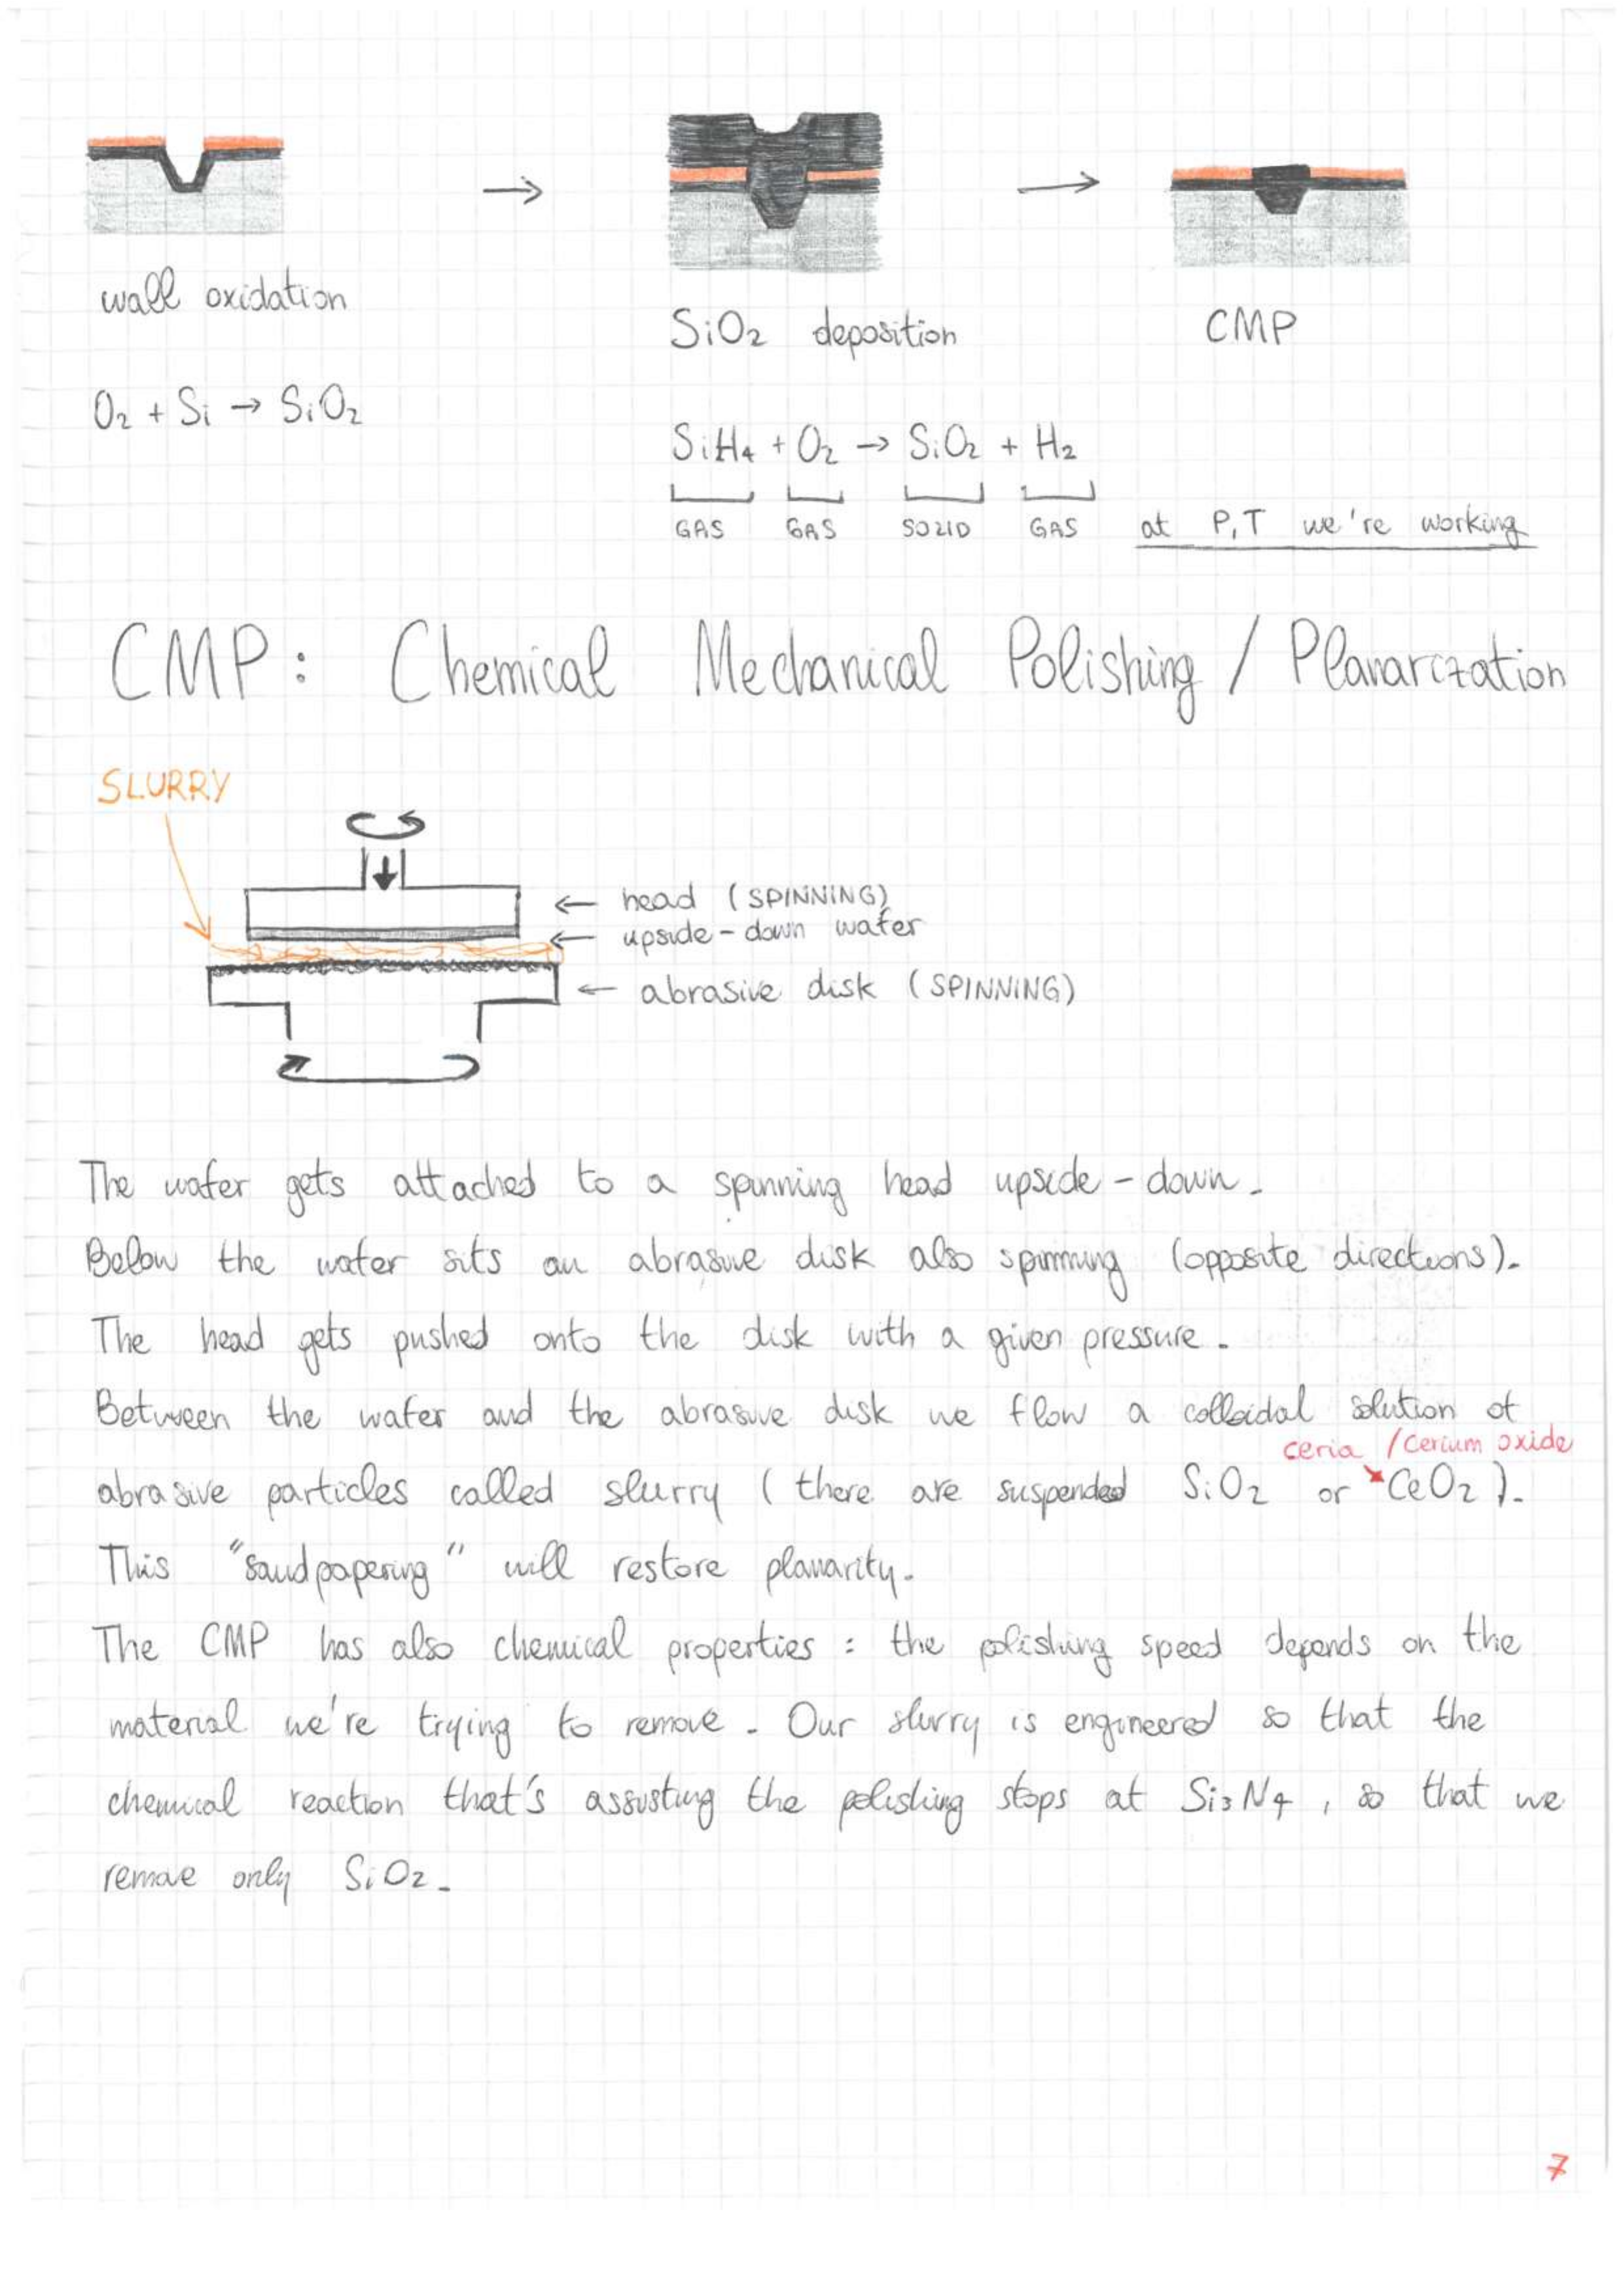 wall oxidation
SiO₂ deposition
CMP
O₂ + Si → SiO₂
SiH₄ + O₂ → SiO₂ + H₂
GAS GAS SOLID GAS at P,T we're working
CMP: Chemical Mechanical Polishing / Planarization
SLURRY
← head (SPINNING)
← upside-down wafer
← abrasive disk (SPINNING)
The wafer gets attached to a spinning head upside-down.
Below the wafer sits an abrasive disk also spinning (opposite directions).
The head gets pushed onto the disk with a given pressure.
Between the wafer and the abrasive disk we flow a colloidal solution of
ceria / cerium oxide
abrasive particles called slurry (there are suspended SiO₂ or CeO₂).
This "sandpapering" will restore planarity.
The CMP has also chemical properties: the polishing speed depends on the
material we're trying to remove. Our slurry is engineered so that the
chemical reaction that's assisting the polishing stops at Si₃N₄, so that we
remove only SiO₂.
7